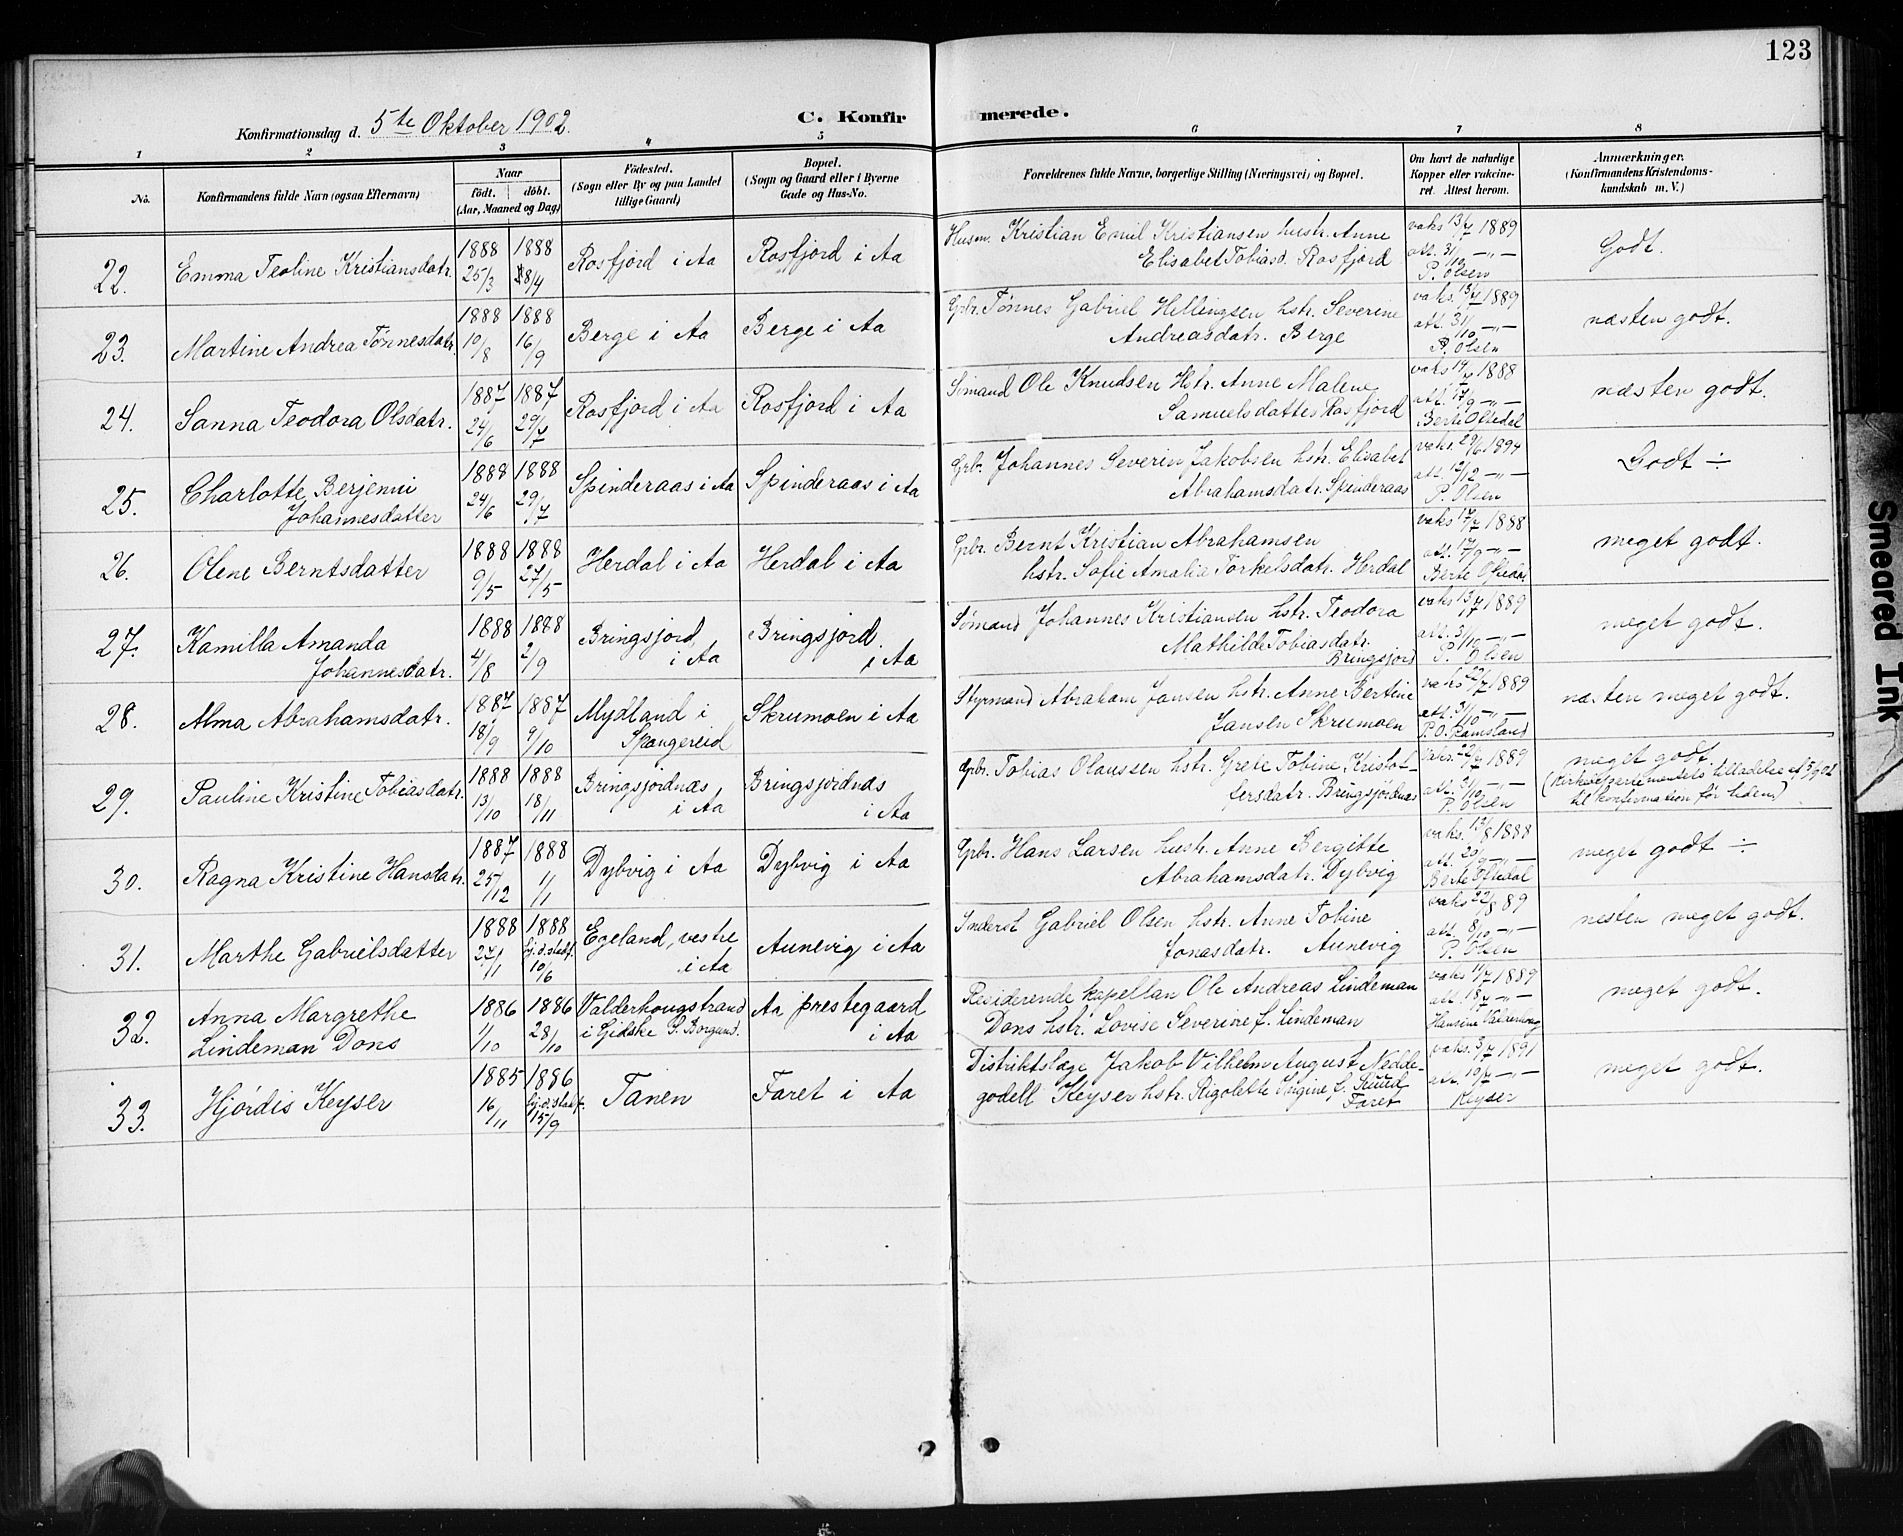 123
Konfirmationsdag d. 5te Oktober 1902.
C. Konfirmerede.
1 2 3 4 5 6 7 8
No.
Konfirmandens fulde Navn (ogsaa Efternavn)
Naar
født. døbt.
(Aar, Maaned og Dag)
Fødested.
(Sogn eller By og paa Landet
tillige Gaard)
Bopæl.
(Sogn og Gaard eller i Byerne
Gade og Hus-No.
Forældrenes fulde Navne, borgerlige Stilling (Næringsvei) og Bopæl.
Om havt de naturlige
Kopper eller vakcine-
ret. Attest herom.
Anmærkninger.
(Konfirmandens Kristendoms-
kundskab m. V.)
22. Emma Teoline Kristiansdatr. 1888 25/3 1888 8/4 Rosfjord i Aa Rosfjord i Aa
Husm. Kristian Emil Kristiansen hustr. Anne
Elisabet Tobiasd. Rosfjord
vaks 13/7 1889
att. 31/10 -"-
P. Olsen
Godt.
23. Martine Andrea Tønnesdatr. 1888 10/8 1888 16/9 Berge i Aa Berge i Aa
Gbr. Tønnes Gabriel Hellingsen hstr. Severine
Andreasdatr. Berge
vaks. 13/7 1889
att. 31/10 -"-
P. Olsen
næsten godt.
24. Sanna Teodora Olsdatr. 1887 24/6 1887 29/7 Rosfjord i Aa Rosfjord i Aa
Sømand Ole Knudsen Hstr. Anne Malene
Samuelsdatter Rosfjord
vaks 1888
att. 17/9 -"-
Berte Oftedal
næsten godt.
25. Charlotte Berjenni
Johannesdatter
1888 24/6 1888 29/7 Spinderaas i Aa Spinderaas i Aa
Gbr. Johannes Severin Jakobsen hstr. Elisabet
Abrahamsdatr. Spinderaas
vaks. 29/6 1894
att. 12/12 -"-
P. Olsen
Godt ÷
26. Olene Berntsdatter 1888 9/5 1888 27/5 Herdal i Aa Herdal i Aa
Gbr. Bernt Kristian Abrahamsen
hstr. Sofie Amalia Torkelsdatr. Herdal
vaks 17/7 1888
att. 17/9 -"-
Berte Oftedal
meget godt.
27. Kamilla Amanda
Johannesdatr.
1888 4/8 1888 2/9 Bringsjord
i Aa
Bringsjord
i Aa
Sømand Johannes Kristiansen hstr. Teodora
Mathilde Tobiasdatr.
Bringsjord
vaks 13/7 1889
att. 31/10 -"-
P. Olsen
meget godt.
28. Alma Abrahamsdatr. 1887 18/9 1887 9/10 Mydland i
Spangereid
Skrumoen i Aa
Styrmand Abraham Jansen hstr. Anne Bertine
Jansen Skrumoen
vaks 22/7 1889
att. 31/10 -"-
P. O. Ramsland
næsten meget godt.
29. Pauline Kristine Tobiasdatr. 1888 13/10 1888 18/11 Bringsjordnæs
i Aa
Bringsjordnæs
i Aa
Gbr. Tobias Olaussen hstr. Grete Tobine Kristof-
fersdatr. Bringsjordnæs
vaks. 22/7 1889
att. 31/10 -"-
P. Olsen
meget godt.
(Kirkedepartementets tilladelse af
til konfirmation før tiden)
30. Ragna Kristine Hansdatr. 1887 25/12 1888 1/1 Dybvig i Aa Dybvig i Aa
Gbr. Hans Larsen hustr. Anne Bergitte
Abrahamsdatr. Dybvig
vaks. 13/8 1888
att. 20/9 -"-
Berte Oftedal
meget godt ÷
31. Marthe Gabrielsdatter 1888 27/1 1888
hj.d. stadf.
10/6
Egeland, vestre
i Aa
Aunevig i Aa
Inderst Gabriel Olsen hstr. Anne Tobine
Jonasdatr. Aunevig
vaks 22/8 89
att. 8/10 -"-
P. Olsen
nesten meget godt.
32. Anna Margrethe
Lindeman Dons
1886 1/10 1886 28/10 Valderhougstrand
i Gjidske P. Borgund.
Aa prestegaard
i Aa
Residerende kapellan Ole Andreas Lindeman
Dons hstr. Lovise Severine f. Lindeman
vaks 11/7 1889
att. 18/7 -"-
Hansine
meget godt.
33. Hjørdis Keyser 1885 16/11 1886
hj.d. stadf.
15/9
Tanen Faret i Aa
Distriktslæge Jakob Vilhelm August Nedde-
godell Keyser hstr. Rigolette f.
Faret
vaks. 3/7 1891
att. 10/7 -"-
Keyser
meget godt.
Smeared Ink